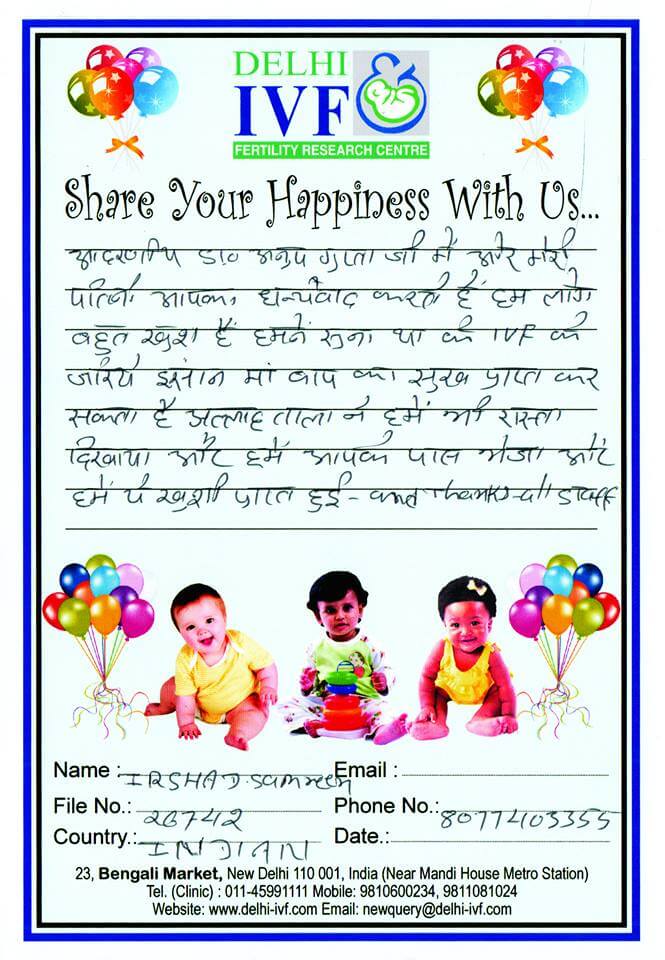 DELHI
IVF
FERTILITY RESEARCH CENTRE
Share Your Happiness With Us...
आदरणीय डा० अनुप गुप्ता जी मैं और मेरी
पत्नि आपका धन्येवाद करते हैं हम लोग
बहुत खुश हैं हमनें सुना था की IVF की
जरिये इंसान मां बाप का सुख प्राप्त कर
सकता है अल्लाह ताला ने हमें भी रास्ता
दिखाया और हमें आपके पास भेजा और
हमें ये खुशी प्राप्त हुई - and Thanks all Staff
Name : IRSHAD. Samreen Email :
File No.: 26742 Phone No.: 8077403355
Country.: INDIAN Date.:
23, Bengali Market, New Delhi 110 001, India (Near Mandi House Metro Station)
Tel. (Clinic) : 011-45991111 Mobile: 9810600234, 9811081024
Website: www.delhi-ivf.com Email: newquery@delhi-ivf.com